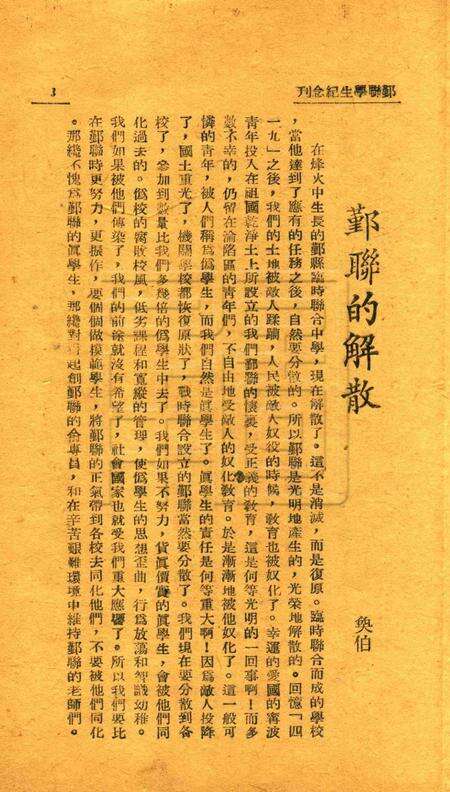 鄞聯學生紀念刊
3
鄞聯的解散
奐伯
在烽火中生長的鄞縣臨時聯合中學，現在解散了。這不是消滅，而是復原。臨時聯合而成的學校
，當他達到了應有的任務之後，自然要分散的。所以鄞聯是光明地產生的，光榮地解散的。回憶「四
一九」之後，我們的土地被敵人蹂躪，人民被敵人奴役的時候，教育也被奴化了。幸運的愛國的甯波
青年投入在祖國乾淨土上所設立的我們鄞聯的懷裏，受正義的教育，這是何等光明的一回事啊！而多
數不幸的，仍留在淪陷區的青年們，不自由地受敵人的奴化教育。於是漸漸地被他奴化了。這一般可
憐的青年，被人們稱爲僞學生，而我們自然是眞學生了。眞學生的責任是何等重大啊！因爲敵人投降
了，國土重光了，機關學校都恢復原狀了，戰時聯合設立的鄞聯當然要分散了。我們現在要分散到各
校了，參加到數量比我們多幾倍的僞學生中去了。我們如果不努力，貨眞價實的眞學生，會被他們同
化過去的。僞校的腐敗校風，低劣課程和寬縱的管理，使僞學生的思想歪曲，行爲放蕩和智識幼稚。
我們如果被他們傳染了，我們的前途就沒有希望了，社會國家也就受我們重大影響了。所以我們要比
在鄞聯時更努力，更振作，要個個做模範學生，將鄞聯的正氣帶到各校去同化他們，不要被他們同化
。那纔不愧爲鄞聯的眞學生，那纔對得起創鄞聯的俞專員，和在辛苦艱難環境中維持鄞聯的老師們。